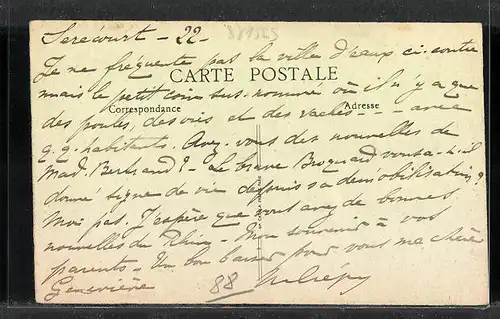 Serécourt - 22 -
Je ne fréquente pas la ville d'eaux ci-contre
CARTE POSTALE
mais le petit coin sus-nommé où il n'y a que
Correspondance
Adresse
des poules, des oies et des vaches - - - avec
q.q. habitants. Avez-vous des nouvelles de
Mad. Bertrand? - Le brave Broquard vous a-t-il
donné signe de vie depuis sa démobilisation?
Moi pas. J'espère que vous avez de bonnes
nouvelles du Rhin - Mon souvenir à vos
parents - Un bon baiser pour vous ma chère
Geneviève
88